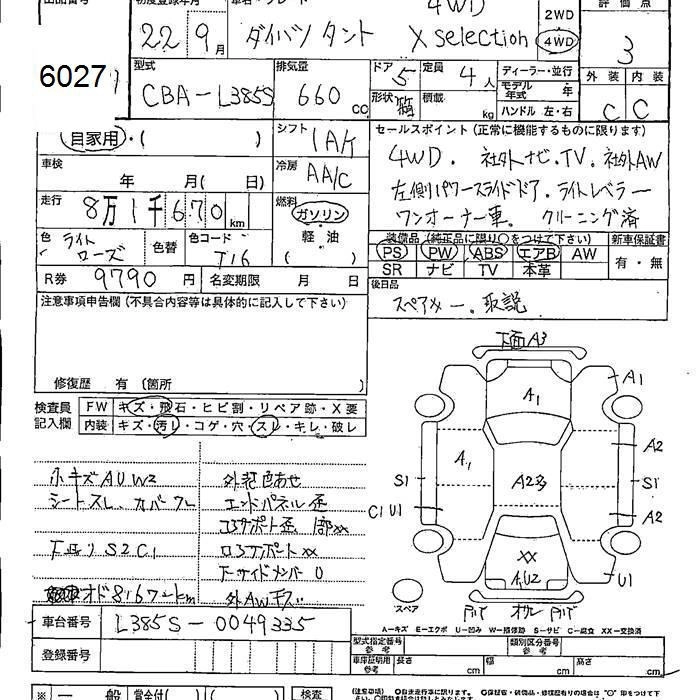 初度登録年月
4WD
2WD
評価点
22 9月
ダイハツ タント
X selection
4WD
3
6027
型式
CBA-L385S
排気量
660 cc
ドア
5
定員
4人
ディーラー・並行
モデル年式 年
外装 内装
C C
形状 箱
積載 kg
ハンドル 左・右
自家用・( )
シフト
IAK
セールスポイント (正常に機能するものに限ります)
車検
年 月( 日)
冷房
AA/C
4WD. 社外ナビ.TV. 社外AW
左側パワースライドドア. ライトレベラー
ワンオーナー車. クリーニング済
走行
8万1千670km
燃料
ガソリン
軽・油
色
ライトローズ
色替
色コード
T16
装備品 (純正品に限り○をつけて下さい)
新車保証書
PS PW ABS エアB AW
SR ナビ TV 本革
有・無
R券
9790円
名変期限 月 日
後日品
スペアキー. 取説
注意事項申告欄 (不具合内容等は具体的に記入して下さい)
修復歴 有 (箇所 )
検査員記入欄
FW キズ・飛石・ヒビ割・リペア跡・X要
内装 キズ・汚レ・コゲ・穴・スレ・キレ・破レ
小キズAUW2
シートスレ
外装色あせ
エンドパネル歪
S2C1
コアサポートXX
オド
外AWキズ
下面A3
A1
A1
A1
A2
A2多
S1
S1
C1U1
A2
XX
A1U2
U1
スペア
A-キズ E-エクボ U-凹み W-補修跡 S-サビ C-腐食 XX-交換済
車台番号
L385S-0049335
登録番号
型式指定番号 参考
類別区分番号 参考
車庫証明用 参考
長さ cm
幅 cm
高さ cm
※
一般
賞金付( )
検査
《注意事項》